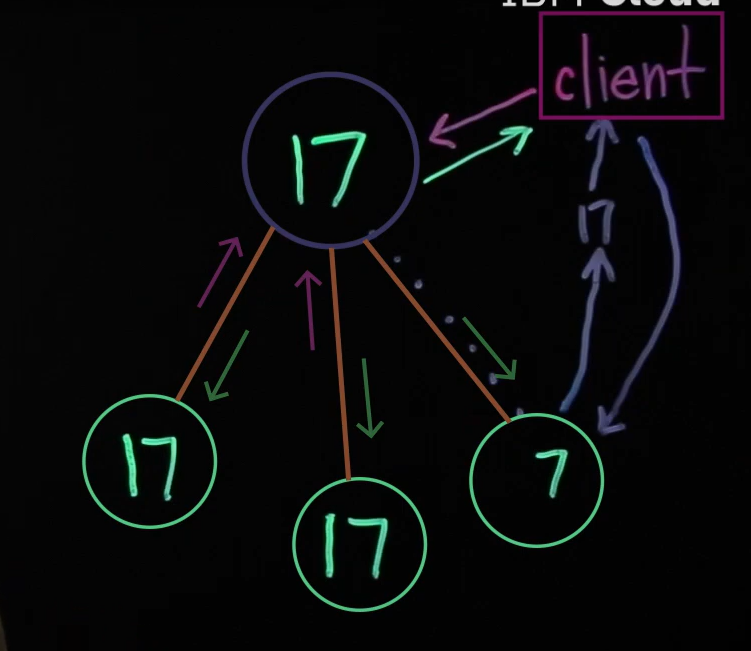 IBM Cloud
client
17
17
17
17
7